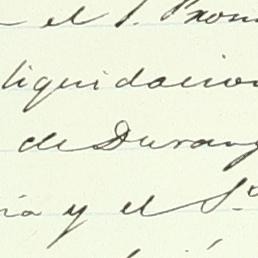 el S. Prom
liquidacion
de Durang
ria y el Sr